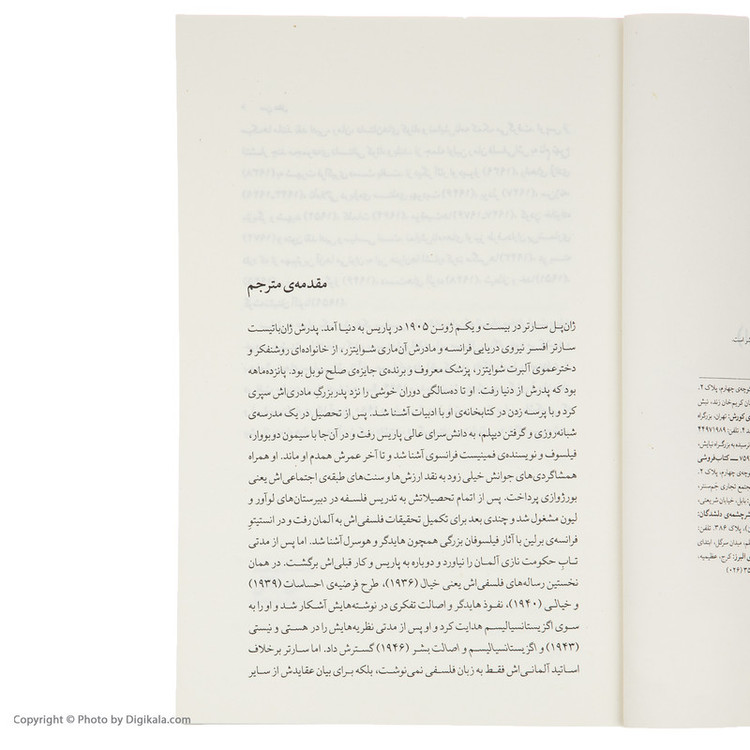 مقدمه‌ی مترجم
ژان‌پل سارتر در بیست و یکم ژوئن ۱۹۰۵ در پاریس به دنیا آمد. پدرش ژان‌باتیست
سارتر افسر نیروی دریایی فرانسه و مادرش آن‌ماری شوایتزر، از خانواده‌ای روشنفکر و
دخترعموی آلبرت شوایتزر، پزشک معروف و برنده‌ی جایزه‌ی صلح نوبل بود. پانزده‌ماهه
بود که پدرش از دنیا رفت. او تا ده‌سالگی دوران خوشی را نزد پدربزرگِ مادری‌اش سپری
کرد و با پرسه زدن در کتابخانه‌ی او با ادبیات آشنا شد. پس از تحصیل در یک مدرسه‌ی
شبانه‌روزی و گرفتن دیپلم، به دانش‌سرای عالی پاریس رفت و در آن‌جا با سیمون دوبووار،
فیلسوف و نویسنده‌ی فمینیست فرانسوی آشنا شد و تا آخر عمرش همدم او ماند. او همراه
همشاگردی‌های جوانش خیلی زود به نقد ارزش‌ها و سنت‌های طبقه‌ی اجتماعی‌اش یعنی
بورژوازی پرداخت. پس از اتمام تحصیلاتش به تدریس فلسفه در دبیرستان‌های لوآور و
لیون مشغول شد و چندی بعد برای تکمیل تحقیقات فلسفی‌اش به آلمان رفت و در انستیتوِ
فرانسه‌ی برلین با آثار فیلسوفان بزرگی همچون هایدگر و هوسرل آشنا شد. اما پس از مدتی
تابِ حکومت نازی آلمان را نیاورد و دوباره به پاریس و کار قبلی‌اش برگشت. در همان
نخستین رساله‌های فلسفی‌اش یعنی خیال (۱۹۳۶)، طرح فرضیه‌ی احساسات (۱۹۳۹)
و خیالی (۱۹۴۰)، نفوذ هایدگر و اصالت تفکری در نوشته‌هایش آشکار شد و او را به
سوی اگزیستانسیالیسم هدایت کرد و او پس از مدتی نظریه‌هایش را در هستی و نیستی
(۱۹۴۳) و اگزیستانسیالیسم و اصالت بشر (۱۹۴۶) گسترش داد. اما سارتر برخلاف
اساتید آلمانی‌اش فقط به زبان فلسفی نمی‌نوشت، بلکه برای بیان عقایدش از سایر
وچه‌ی چهارم، پلاک ۲.
ن کریم‌خان زند، نبش
ی کورش: تهران، بزرگراه
د ۴. تلفن: ۴۴۹۷۱۹۸۹
نرسیده به بزرگراه نیایش،
۷۵۹ — کتاب‌فروشی
وچه‌ی چهارم، پلاک ۲.
جتمع تجاری جم‌سنتر،
: بابل، خیابان شریعتی،
رچشمه‌ی دلشدگان:
)، پلاک ۳۸۶. تلفن:
م، میدان سرگل، ابتدای
ی البرز: کرج، عظیمیه،
۳۵ (۰۲۶)
Copyright © Photo by Digikala.com